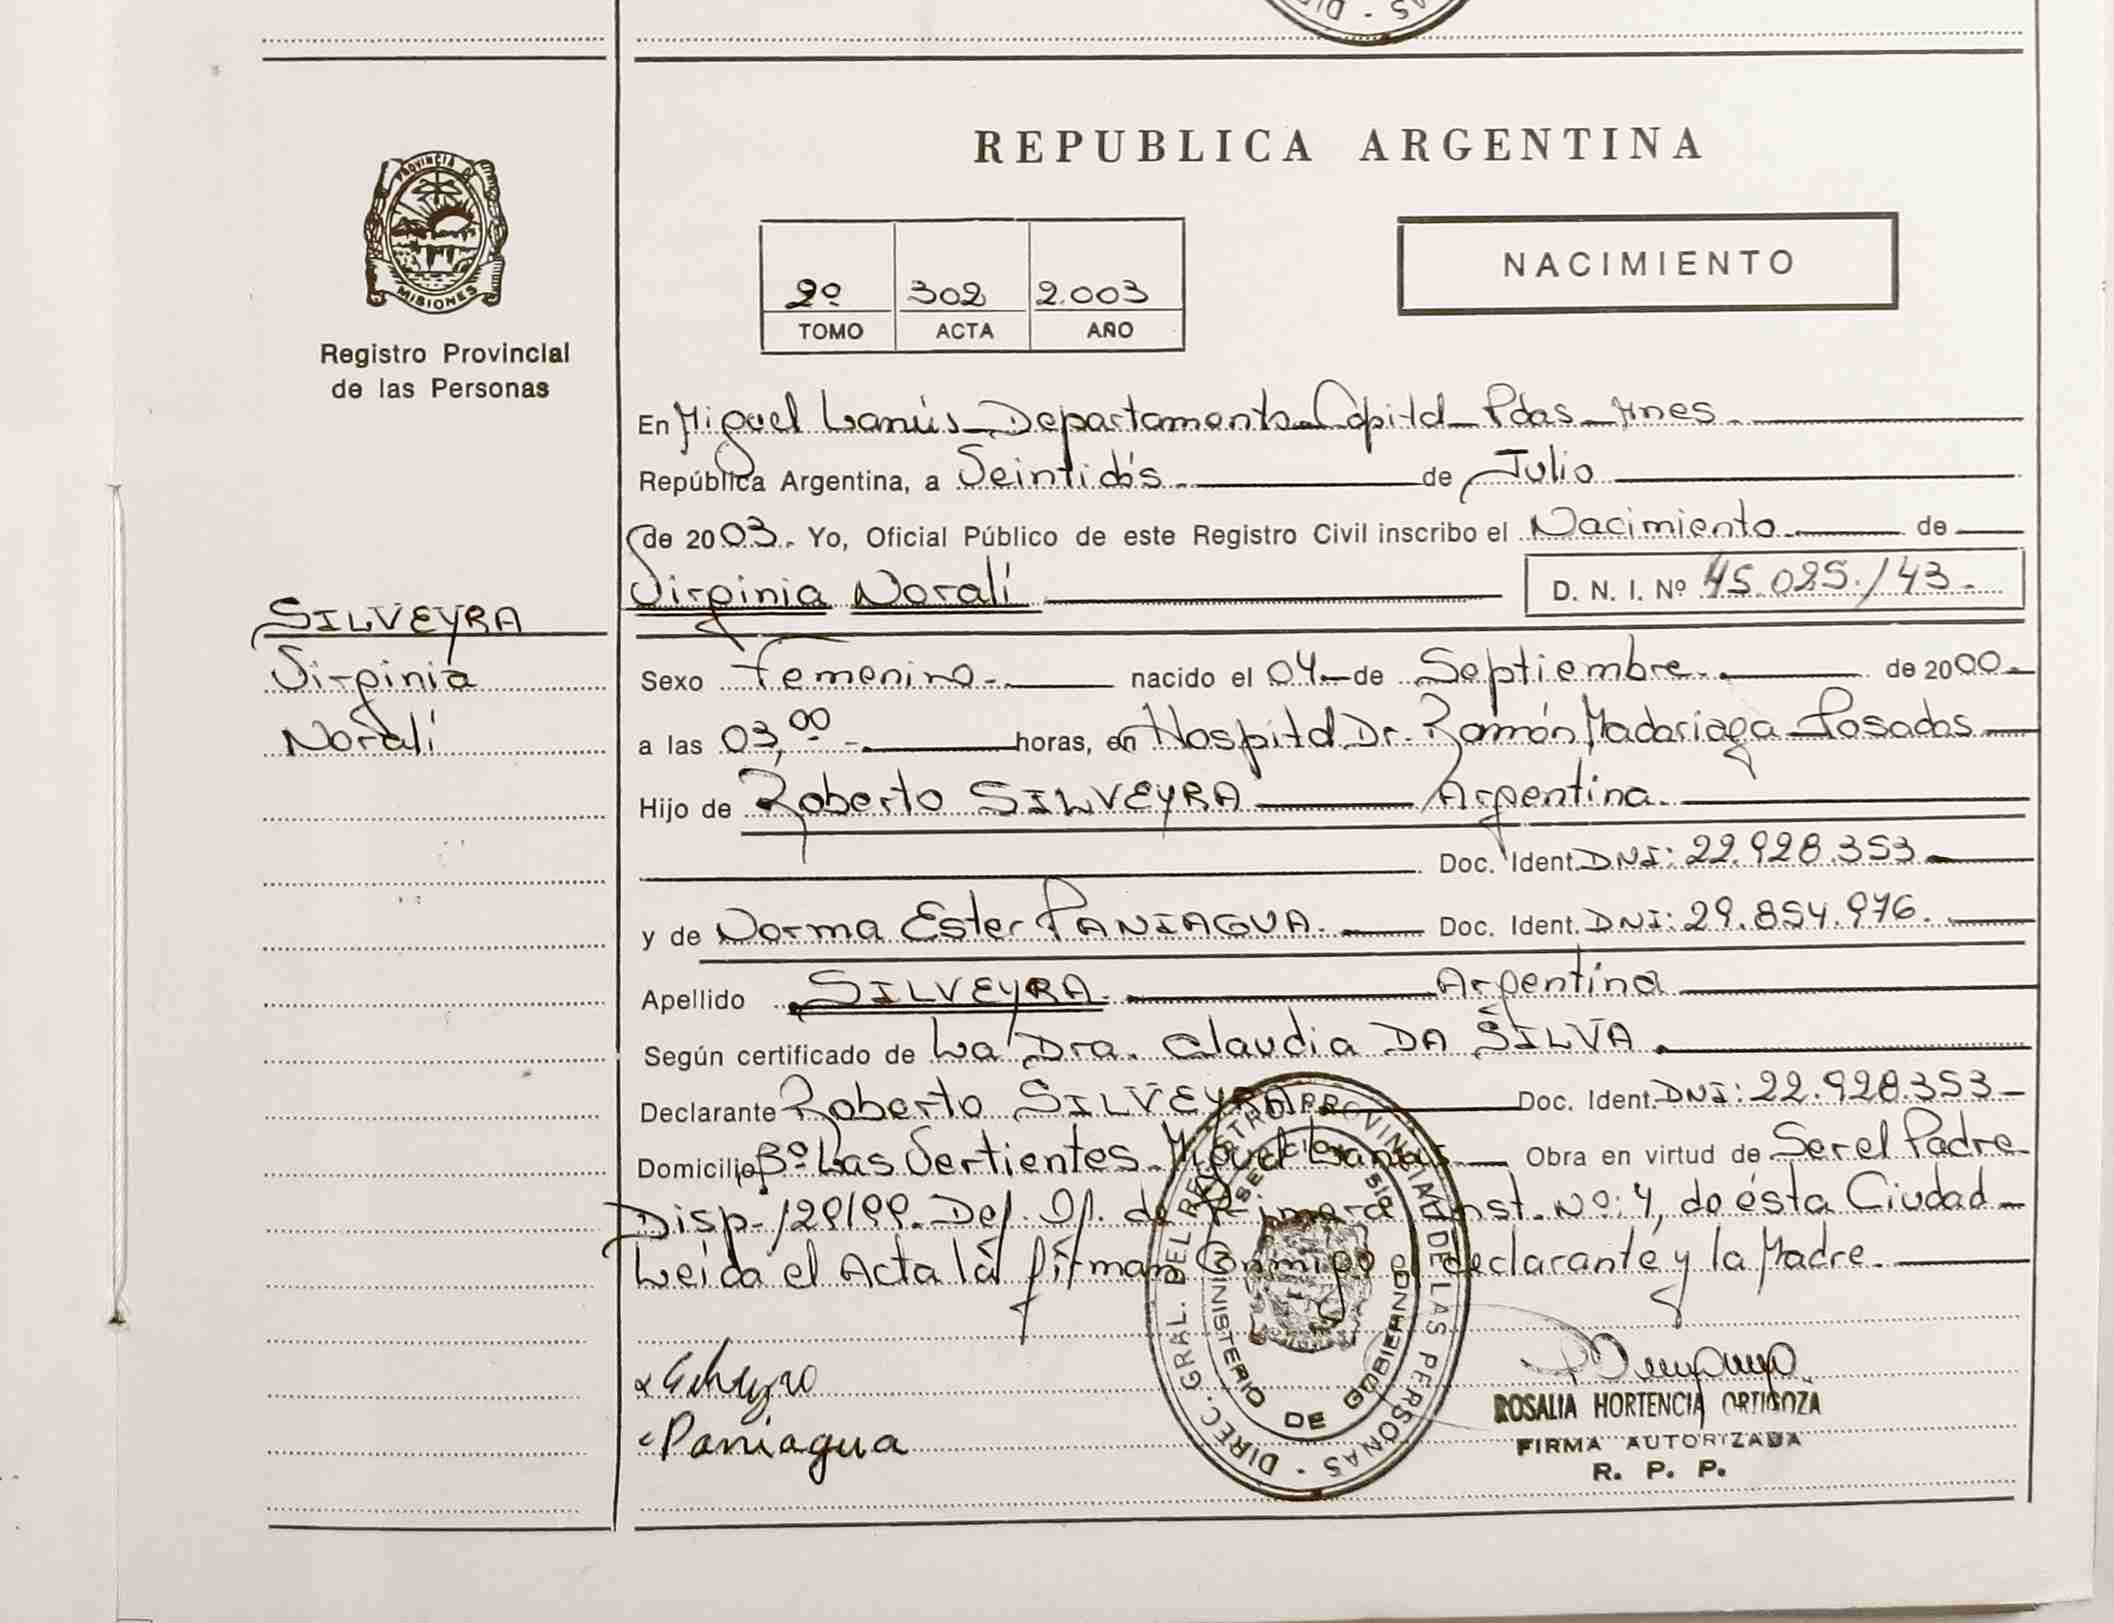 REPUBLICA ARGENTINA
PROVINCIA DE
MISIONES
Registro Provincial
de las Personas
2º 302 2.003
TOMO ACTA AÑO
NACIMIENTO
En Miguel Lanús - Departamento Capital - Pdas - Mnes
República Argentina, a Veintidós de Julio
de 2003. Yo, Oficial Público de este Registro Civil inscribo el Nacimiento de
Virginia Noralí D. N. I. Nº 45.025.143.-
SILVEYRA
Virginia
Noralí
Sexo Femenino.- nacido el 04 de Septiembre. de 2000-
a las 03,00 - horas, en Hospital Dr. Ramón Madariaga - Posadas
Hijo de Roberto SILVEYRA Argentina.
Doc. Ident. DNI: 22.928.353
y de Norma Ester PANIAGUA. Doc. Ident. DNI: 29.854.976.
Apellido SILVEYRA. Argentina
Según certificado de La Dra. Claudia DA SILVA.
Declarante Roberto SILVEYRA Doc. Ident. DNI: 22.928.353-
Domicilio Bº Las Vertientes - Miguel Lanús Obra en virtud de Ser el Padre-
Disp- 129/99. Def. Of. de Primera Inst. Nº: 4, de ésta Ciudad-
Leída el Acta la firman Conmigo el declarante y la Madre.
DIREC. GRAL. DEL REGISTRO PROVINCIAL DE LAS PERSONAS
MINISTERIO DE GOBIERNO
Paniagua
ROSALIA HORTENCIA ORTIGOZA
FIRMA AUTORIZADA
R. P. P.